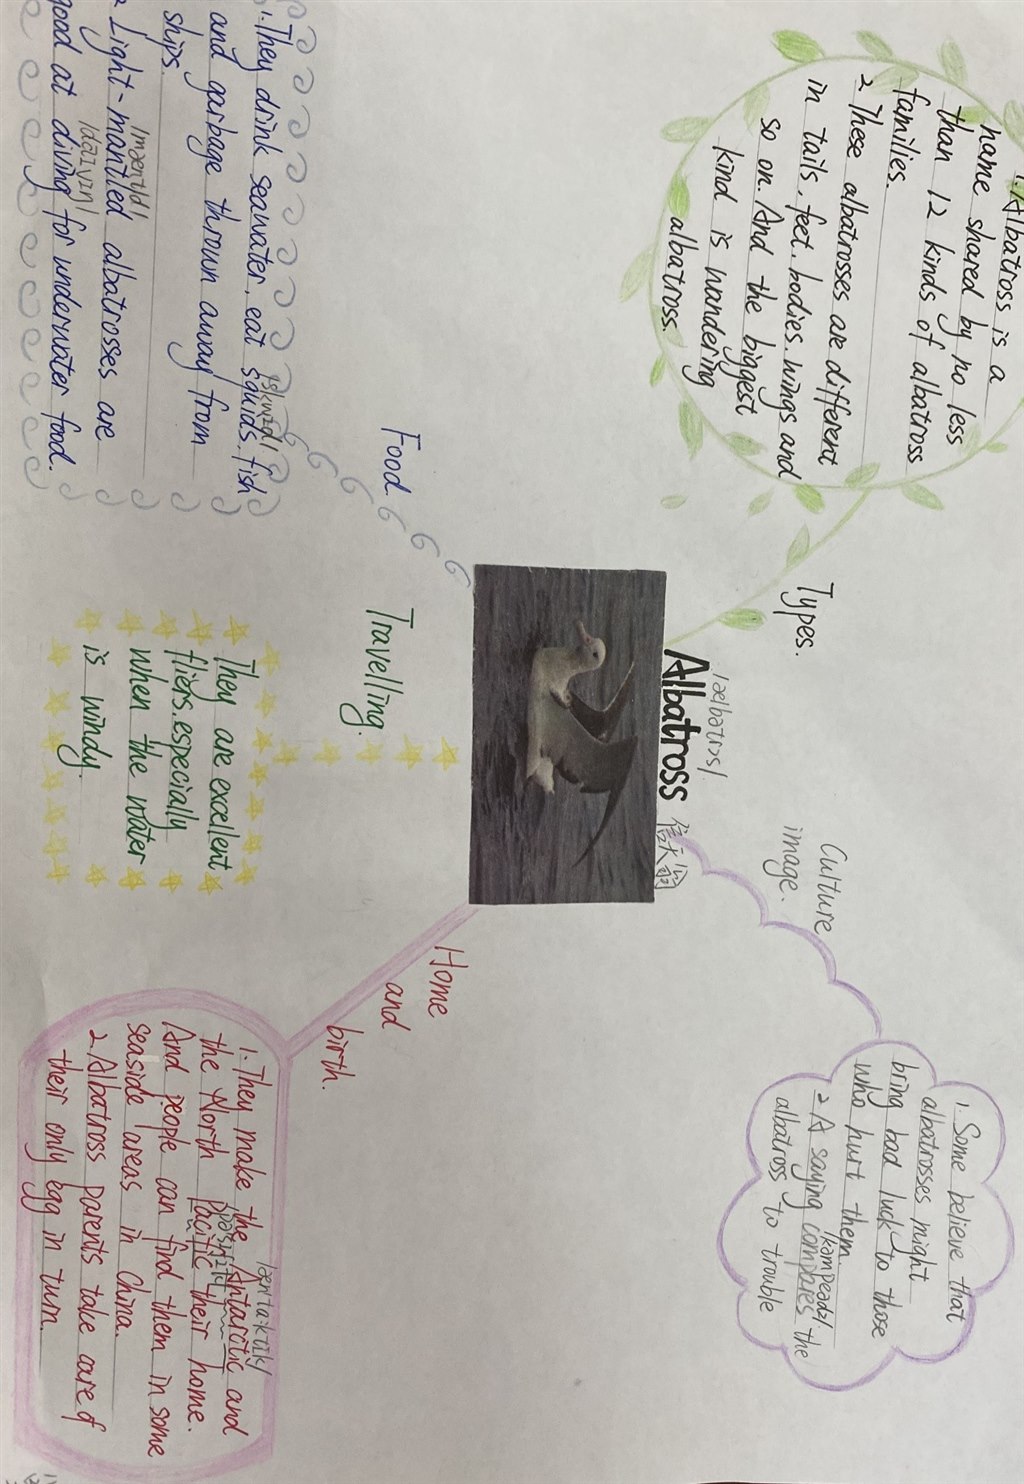 /ælbətrɔs/
Albatross 信天翁
Types.
1. Albatross is a
name shared by no less
than 12 kinds of albatross
families.
2. These albatrosses are different
in tails, feet, bodies, wings and
so on. And the biggest
kind is wandering
albatross.
Culture
image.
1. Some believe that
albatrosses might
bring bad luck to those
who hurt them.
/kəmpeədz/
2. A saying compares the
albatross to trouble
Food.
1. They drink seawater, eat squids, fish
/skwɪd/
and garbage thrown away from
ships.
/mæntld/
2. Light-mantled albatrosses are
/daɪvɪŋ/
good at diving for underwater food.
Travelling.
They are excellent
fliers, especially
when the water
is windy.
Home
and
birth.
/æntɑktɪk/
1. They make the Antarctic and
/pəsɪfɪk/
the North Pacific their home.
And people can find them in some
seaside areas in China.
2. Albatross parents take care of
their only egg in turn.